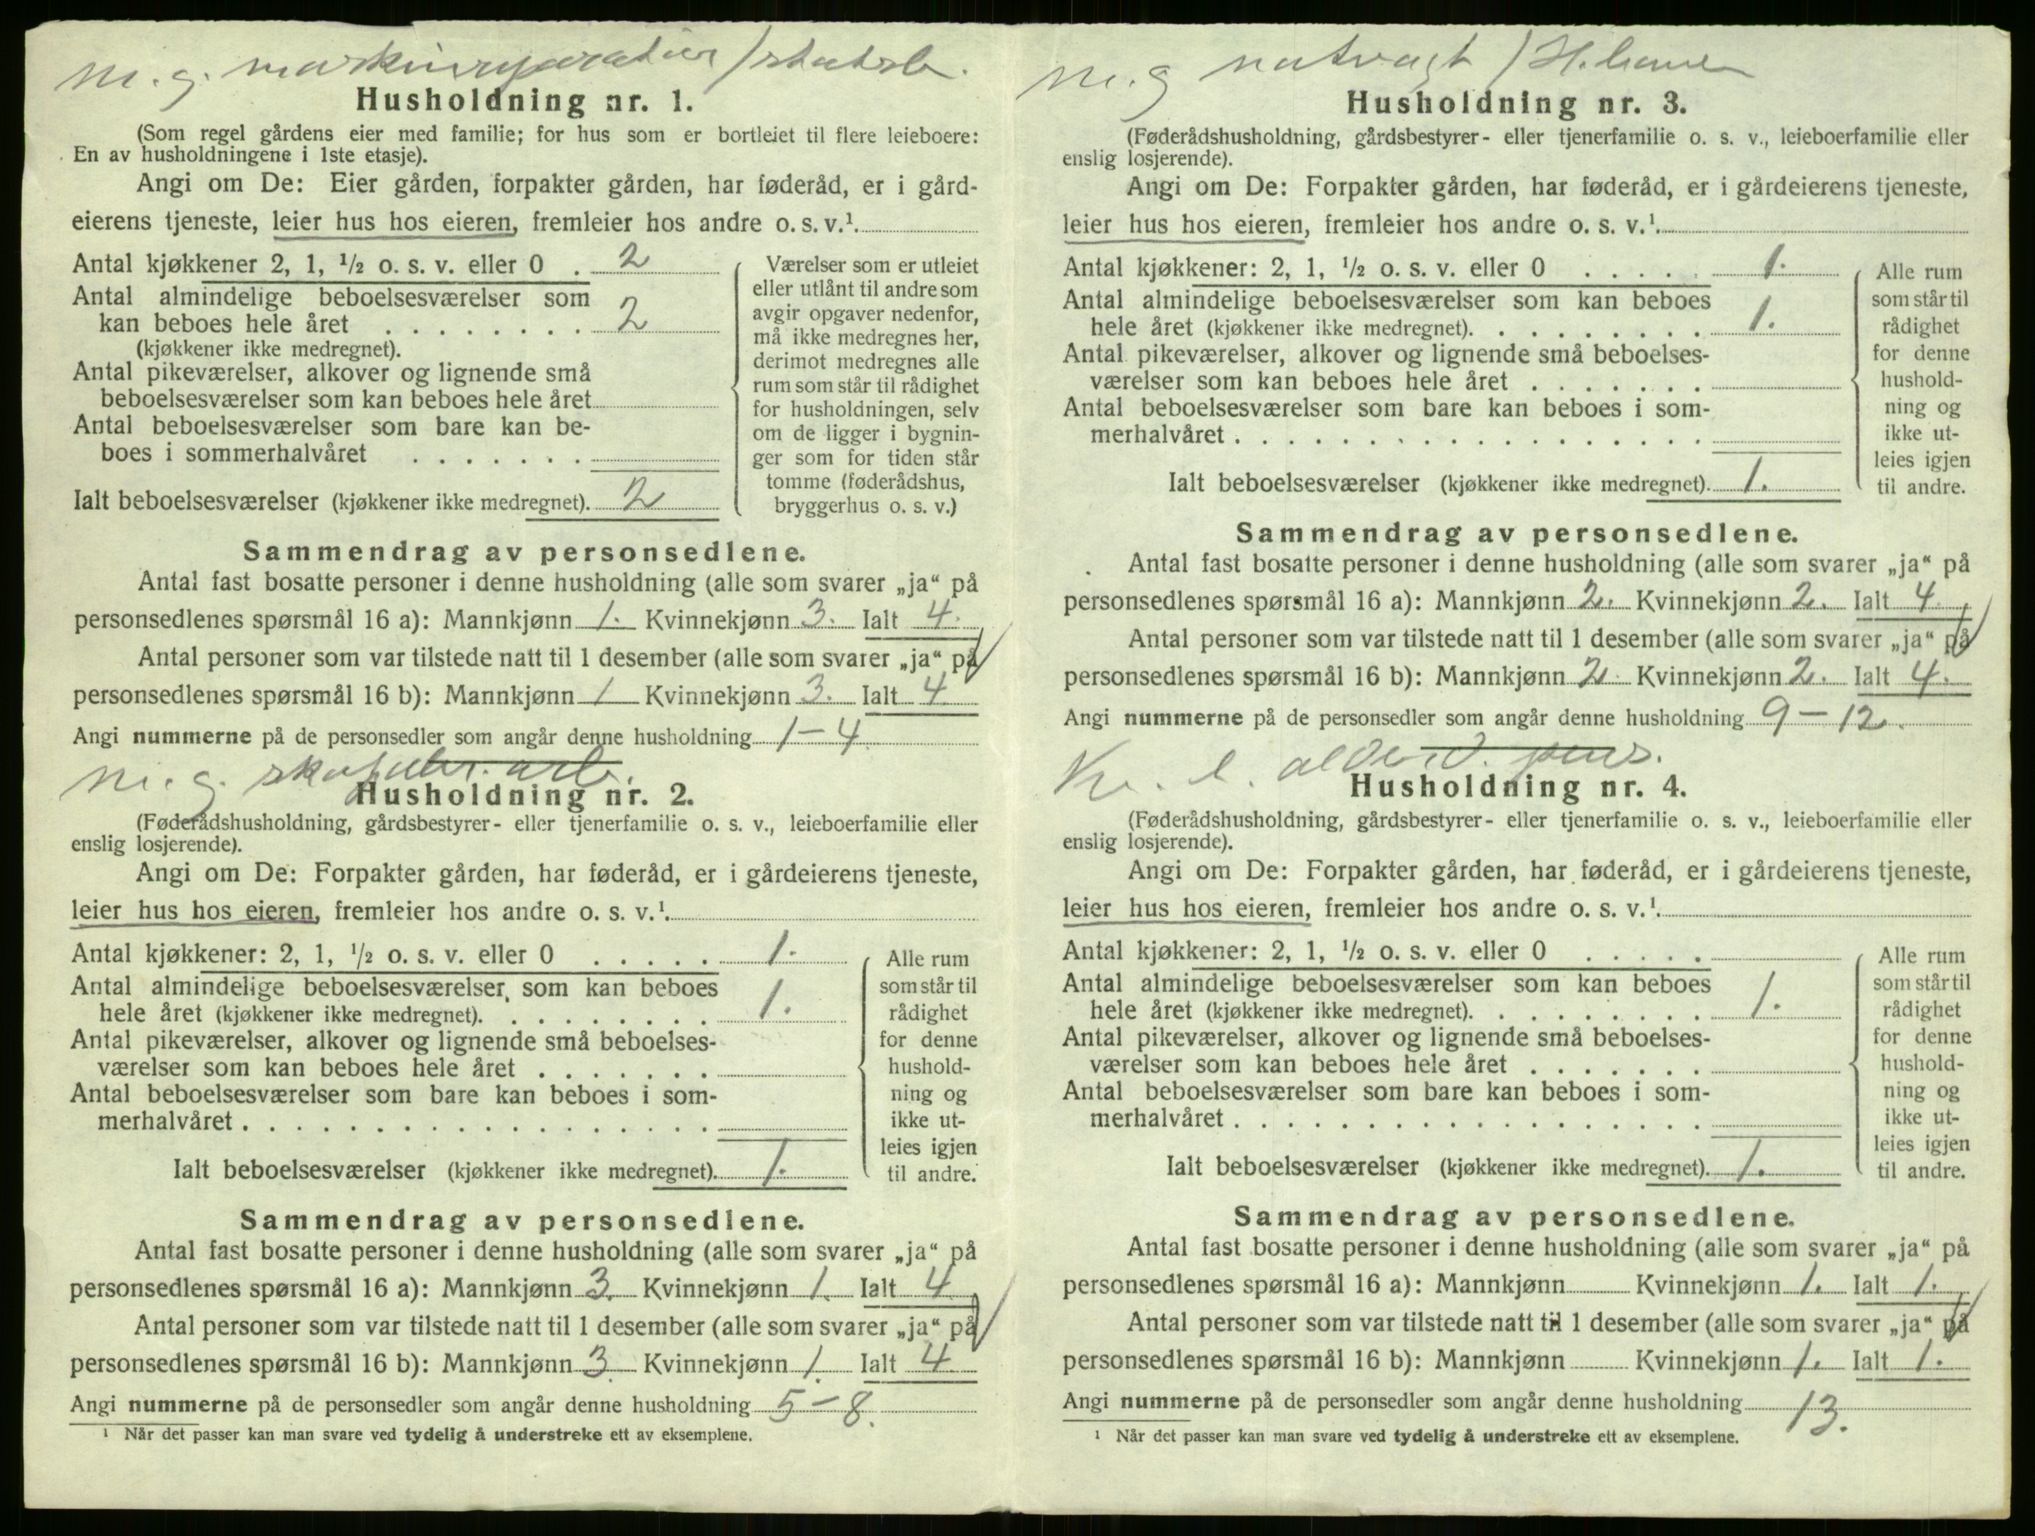 m. g. maskinreparatør / statsb.
Husholdning nr. 1.
(Som regel gårdens eier med familie; for hus som er bortleiet til flere leieboere:
En av husholdningene i 1ste etasje).
Angi om De: Eier gården, forpakter gården, har føderåd, er i gård-
eierens tjeneste, leier hus hos eieren, fremleier hos andre o. s. v.¹
Antal kjøkkener 2, 1, ½ o. s. v. eller 0 . 2
Antal almindelige beboelsesværelser som
kan beboes hele året . . . . . . . . 2
(kjøkkener ikke medregnet).
Antal pikeværelser, alkover og lignende små
beboelsesværelser som kan beboes hele året
Antal beboelsesværelser som bare kan be-
boes i sommerhalvåret . . . . . . .
Ialt beboelsesværelser (kjøkkener ikke medregnet). 2
Værelser som er utleiet
eller utlånt til andre som
avgir opgaver nedenfor,
må ikke medregnes her,
derimot medregnes alle
rum som står til rådighet
for husholdningen, selv
om de ligger i bygnin-
ger som for tiden står
tomme (føderådshus,
bryggerhus o. s. v.)
Sammendrag av personsedlene.
Antal fast bosatte personer i denne husholdning (alle som svarer „ja“ på
personsedlenes spørsmål 16 a): Mannkjønn 1. Kvinnekjønn 3. Ialt 4.
Antal personer som var tilstede natt til 1 desember (alle som svarer „ja“ på
personsedlenes spørsmål 16 b): Mannkjønn 1 Kvinnekjønn 3. Ialt 4
Angi nummerne på de personsedler som angår denne husholdning 1–4
m. g. arb.
Husholdning nr. 2.
(Føderådshusholdning, gårdsbestyrer- eller tjenerfamilie o. s. v., leieboerfamilie eller
enslig losjerende).
Angi om De: Forpakter gården, har føderåd, er i gårdeierens tjeneste,
leier hus hos eieren, fremleier hos andre o. s. v.¹
Antal kjøkkener: 2, 1, ½ o. s. v. eller 0 . . . . . 1.
Antal almindelige beboelsesværelser som kan beboes
hele året (kjøkkener ikke medregnet). . . . . . . . . 1.
Antal pikeværelser, alkover og lignende små beboelses-
værelser som kan beboes hele året . . . . . . .
Antal beboelsesværelser som bare kan beboes i som-
merhalvåret . . . . . . . . . . . . . . . . . .
Ialt beboelsesværelser (kjøkkener ikke medregnet). 1.
Alle rum
som står til
rådighet
for denne
hushold-
ning og
ikke ut-
leies igjen
til andre.
Sammendrag av personsedlene.
Antal fast bosatte personer i denne husholdning (alle som svarer „ja“ på
personsedlenes spørsmål 16 a): Mannkjønn 3. Kvinnekjønn 1. Ialt 4
Antal personer som var tilstede natt til 1 desember (alle som svarer „ja“ på
personsedlenes spørsmål 16 b): Mannkjønn 3 Kvinnekjønn 1. Ialt 4.
Angi nummerne på de personsedler som angår denne husholdning 5–8.
¹ Når det passer kan man svare ved tydelig å understreke ett av eksemplene.
m. g natvagt /
Husholdning nr. 3.
(Føderådshusholdning, gårdsbestyrer- eller tjenerfamilie o. s. v., leieboerfamilie eller
enslig losjerende).
Angi om De: Forpakter gården, har føderåd, er i gårdeierens tjeneste,
leier hus hos eieren, fremleier hos andre o. s. v.¹
Antal kjøkkener: 2, 1, ½ o. s. v. eller 0 . . . . . 1.
Antal almindelige beboelsesværelser som kan beboes
hele året (kjøkkener ikke medregnet). . . . . . . . . 1.
Antal pikeværelser, alkover og lignende små beboelses-
værelser som kan beboes hele året . . . . . . .
Antal beboelsesværelser som bare kan beboes i som-
merhalvåret . . . . . . . . . . . . . . . . . .
Ialt beboelsesværelser (kjøkkener ikke medregnet). 1.
Alle rum
som står til
rådighet
for denne
hushold-
ning og
ikke ut-
leies igjen
til andre.
Sammendrag av personsedlene.
Antal fast bosatte personer i denne husholdning (alle som svarer „ja“ på
personsedlenes spørsmål 16 a): Mannkjønn 2. Kvinnekjønn 2. Ialt 4.
Antal personer som var tilstede natt til 1 desember (alle som svarer „ja“ på
personsedlenes spørsmål 16 b): Mannkjønn 2. Kvinnekjønn 2. Ialt 4.
Angi nummerne på de personsedler som angår denne husholdning 9–12.
Kv. e. alderd. pens.
Husholdning nr. 4.
(Føderådshusholdning, gårdsbestyrer- eller tjenerfamilie o. s. v., leieboerfamilie eller
enslig losjerende).
Angi om De: Forpakter gården, har føderåd, er i gårdeierens tjeneste,
leier hus hos eieren, fremleier hos andre o. s. v.¹
Antal kjøkkener: 2, 1, ½ o. s. v. eller 0 . . . . .
Antal almindelige beboelsesværelser som kan beboes
hele året (kjøkkener ikke medregnet). . . . . . . . . 1.
Antal pikeværelser, alkover og lignende små beboelses-
værelser som kan beboes hele året . . . . . . .
Antal beboelsesværelser som bare kan beboes i som-
merhalvåret . . . . . . . . . . . . . . . . . .
Ialt beboelsesværelser (kjøkkener ikke medregnet). 1.
Alle rum
som står til
rådighet
for denne
hushold-
ning og
ikke ut-
leies igjen
til andre.
Sammendrag av personsedlene.
Antal fast bosatte personer i denne husholdning (alle som svarer „ja“ på
personsedlenes spørsmål 16 a): Mannkjønn Kvinnekjønn 1. Ialt 1.
Antal personer som var tilstede natt til 1 desember (alle som svarer „ja“ på
personsedlenes spørsmål 16 b): Mannkjønn Kvinnekjønn 1. Ialt 1.
Angi nummerne på de personsedler som angår denne husholdning 13.
¹ Når det passer kan man svare ved tydelig å understreke ett av eksemplene.